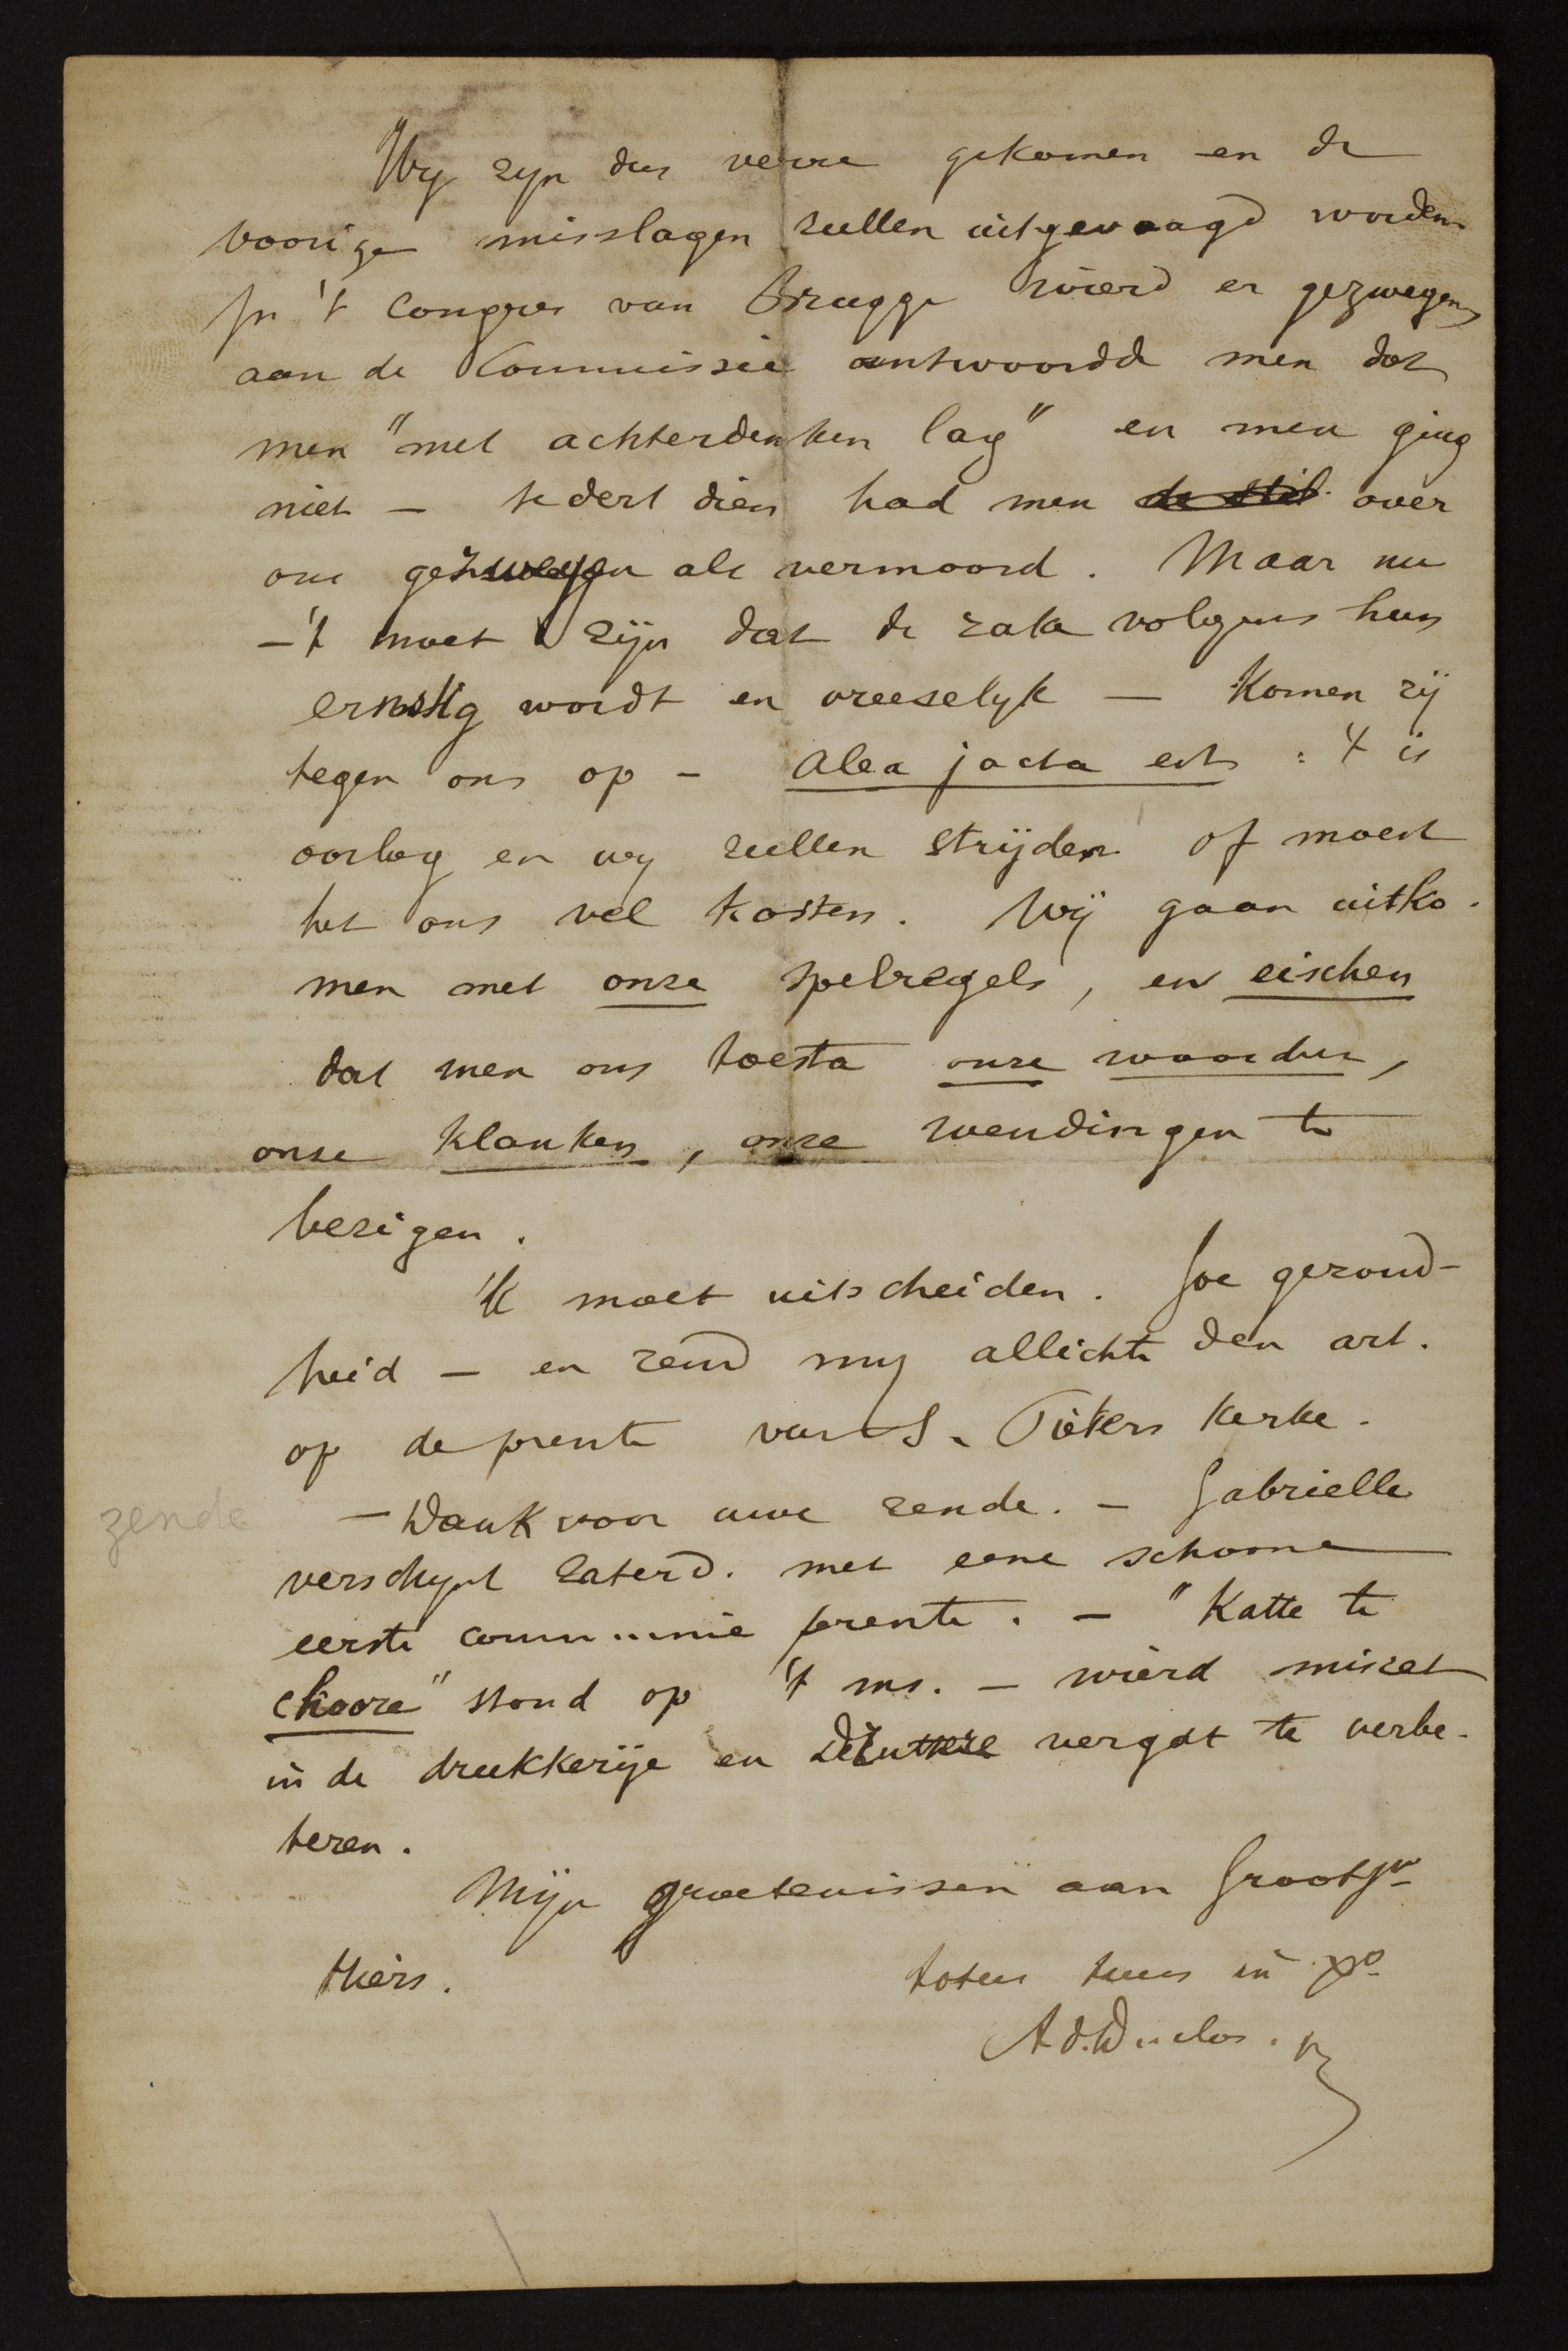 Wy zyn dus verre gekomen en de
voorige misslagen zullen uitgevaagd worden
In 't Congres van Brugge wierd er gezwegen,
aan de Commissie antwoordd men dat
men "met achterdenken lag" en men ging
niet — sedert dien had men de stil over
ons gezwegen als vermoord. Maar nu
— 't moet zijn dat de zake volgens hun
ernstig wordt en vreeselyk — komen zij
tegen ons op — alea jacta est : 't is
oorlog en wy zullen strijden of moest
het ons vel kosten. Wij gaan uitko-
men met onze spelregels, en eischen
dat men ons toesta onze woorden,
onze klanken, onze wendingen te
bezigen.
Ik moet uitscheiden. Joe gezond-
heid — en zend my allichte den art.
op de prente van S. Pieters kerke.
zende
— Dank voor uwe zende. — Gabrielle
verschynt zaterd. met eene schoone
eerste communie prente. — "Katte te
choore" stond op 't ms. — wierd miszet
in de drukkerije en vergat te verbe-
teren.
Mijn groetenissen aan Grootjn
thiers.
totus tuus in Xo
Ad. Duclos.